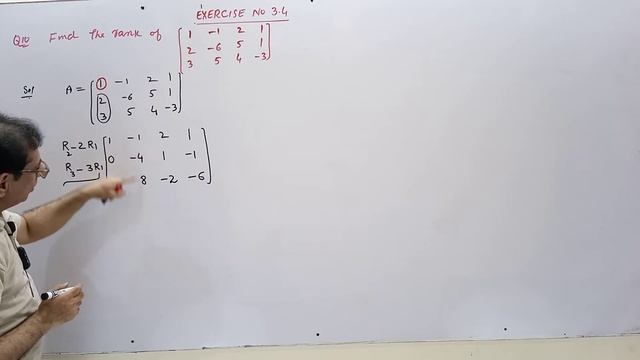 EXERCISE NO 3.4
Q10 Find the rank of [ 1 -1 2 1
2 -6 5 1
3 5 4 -3 ]
Sol A = [ 1 -1 2 1
2 -6 5 1
3 5 4 -3 ]
R2-2R1 [ 1 -1 2 1
0 -4 1 -1
R3-3R1 8 -2 -6 ]